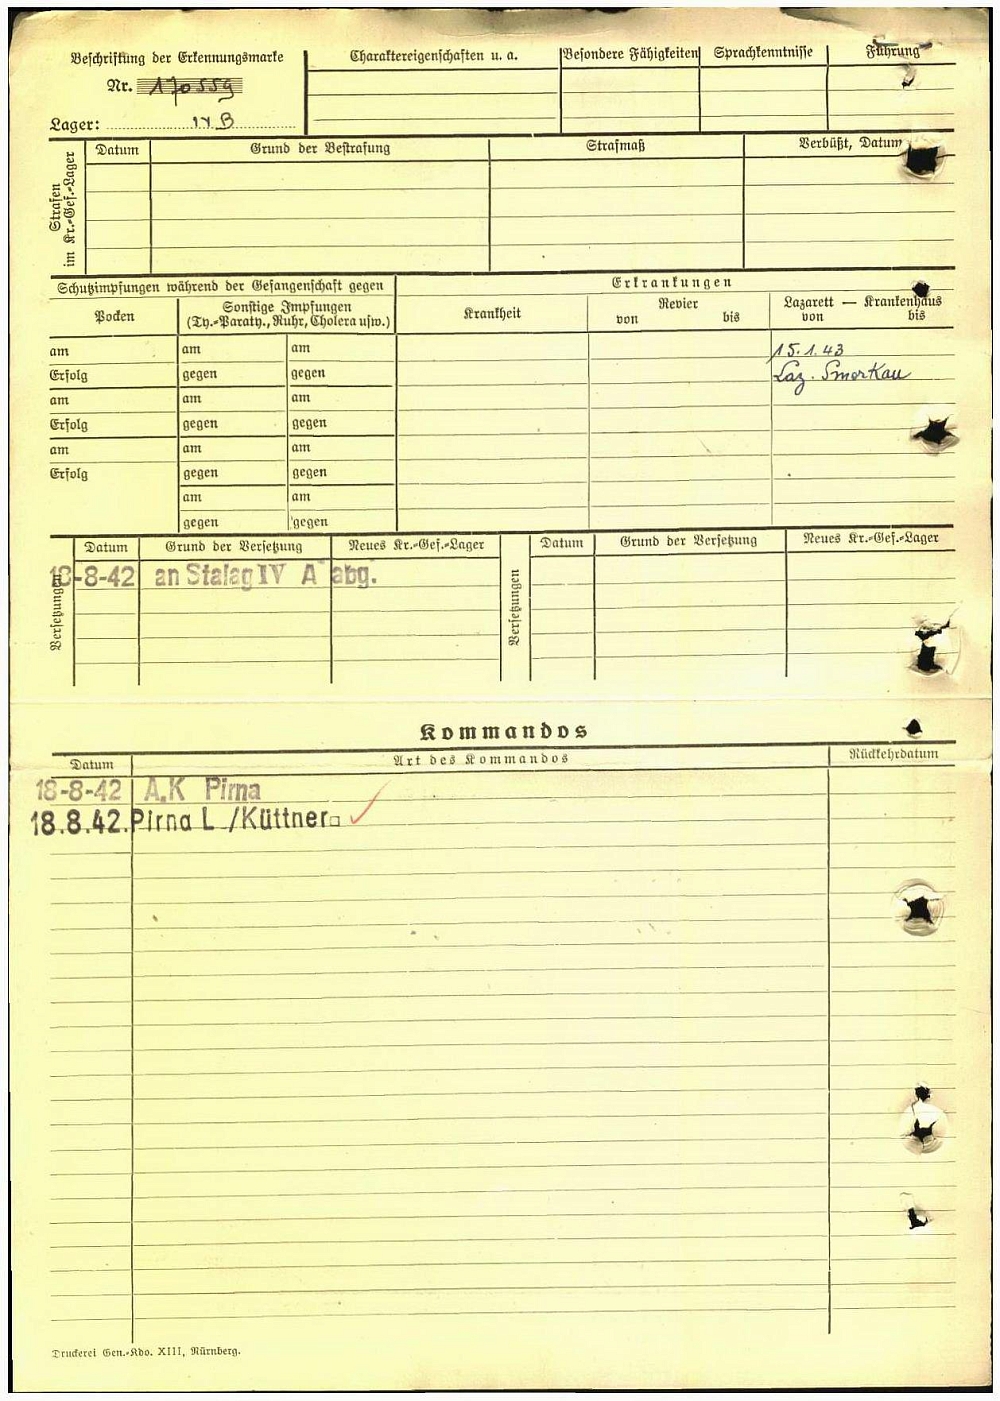 Beschriftung der Erkennungsmarke
Nr. 170559
Lager: IV B
Charaktereigenschaften u. a.
Besondere Fähigkeiten
Sprachkenntnisse
Führung
Strafen im Kr.-Gef.-Lager
Datum
Grund der Bestrafung
Strafmaß
Verbüßt, Datum
Schutzimpfungen während der Gefangenschaft gegen
Erkrankungen
Pocken
Sonstige Impfungen
(Ty.-Paraty., Ruhr, Cholera usw.)
Krankheit
Revier
von bis
Lazarett — Krankenhaus
von bis
am am am 15.1.43
Erfolg gegen gegen Laz. Smorkau
am am am
Erfolg gegen gegen
am am am
Erfolg gegen gegen
am am
gegen gegen
Versetzungen
Datum Grund der Versetzung Neues Kr.-Gef.-Lager
18-8-42 an Stalag IV A abg.
Versetzungen
Datum Grund der Versetzung Neues Kr.-Gef.-Lager
Kommandos
Datum Art des Kommandos Rückkehrdatum
18-8-42 A.K Pirna
18.8.42. Pirna L /Küttner
Druckerei Gen.-Kdo. XIII, Nürnberg.